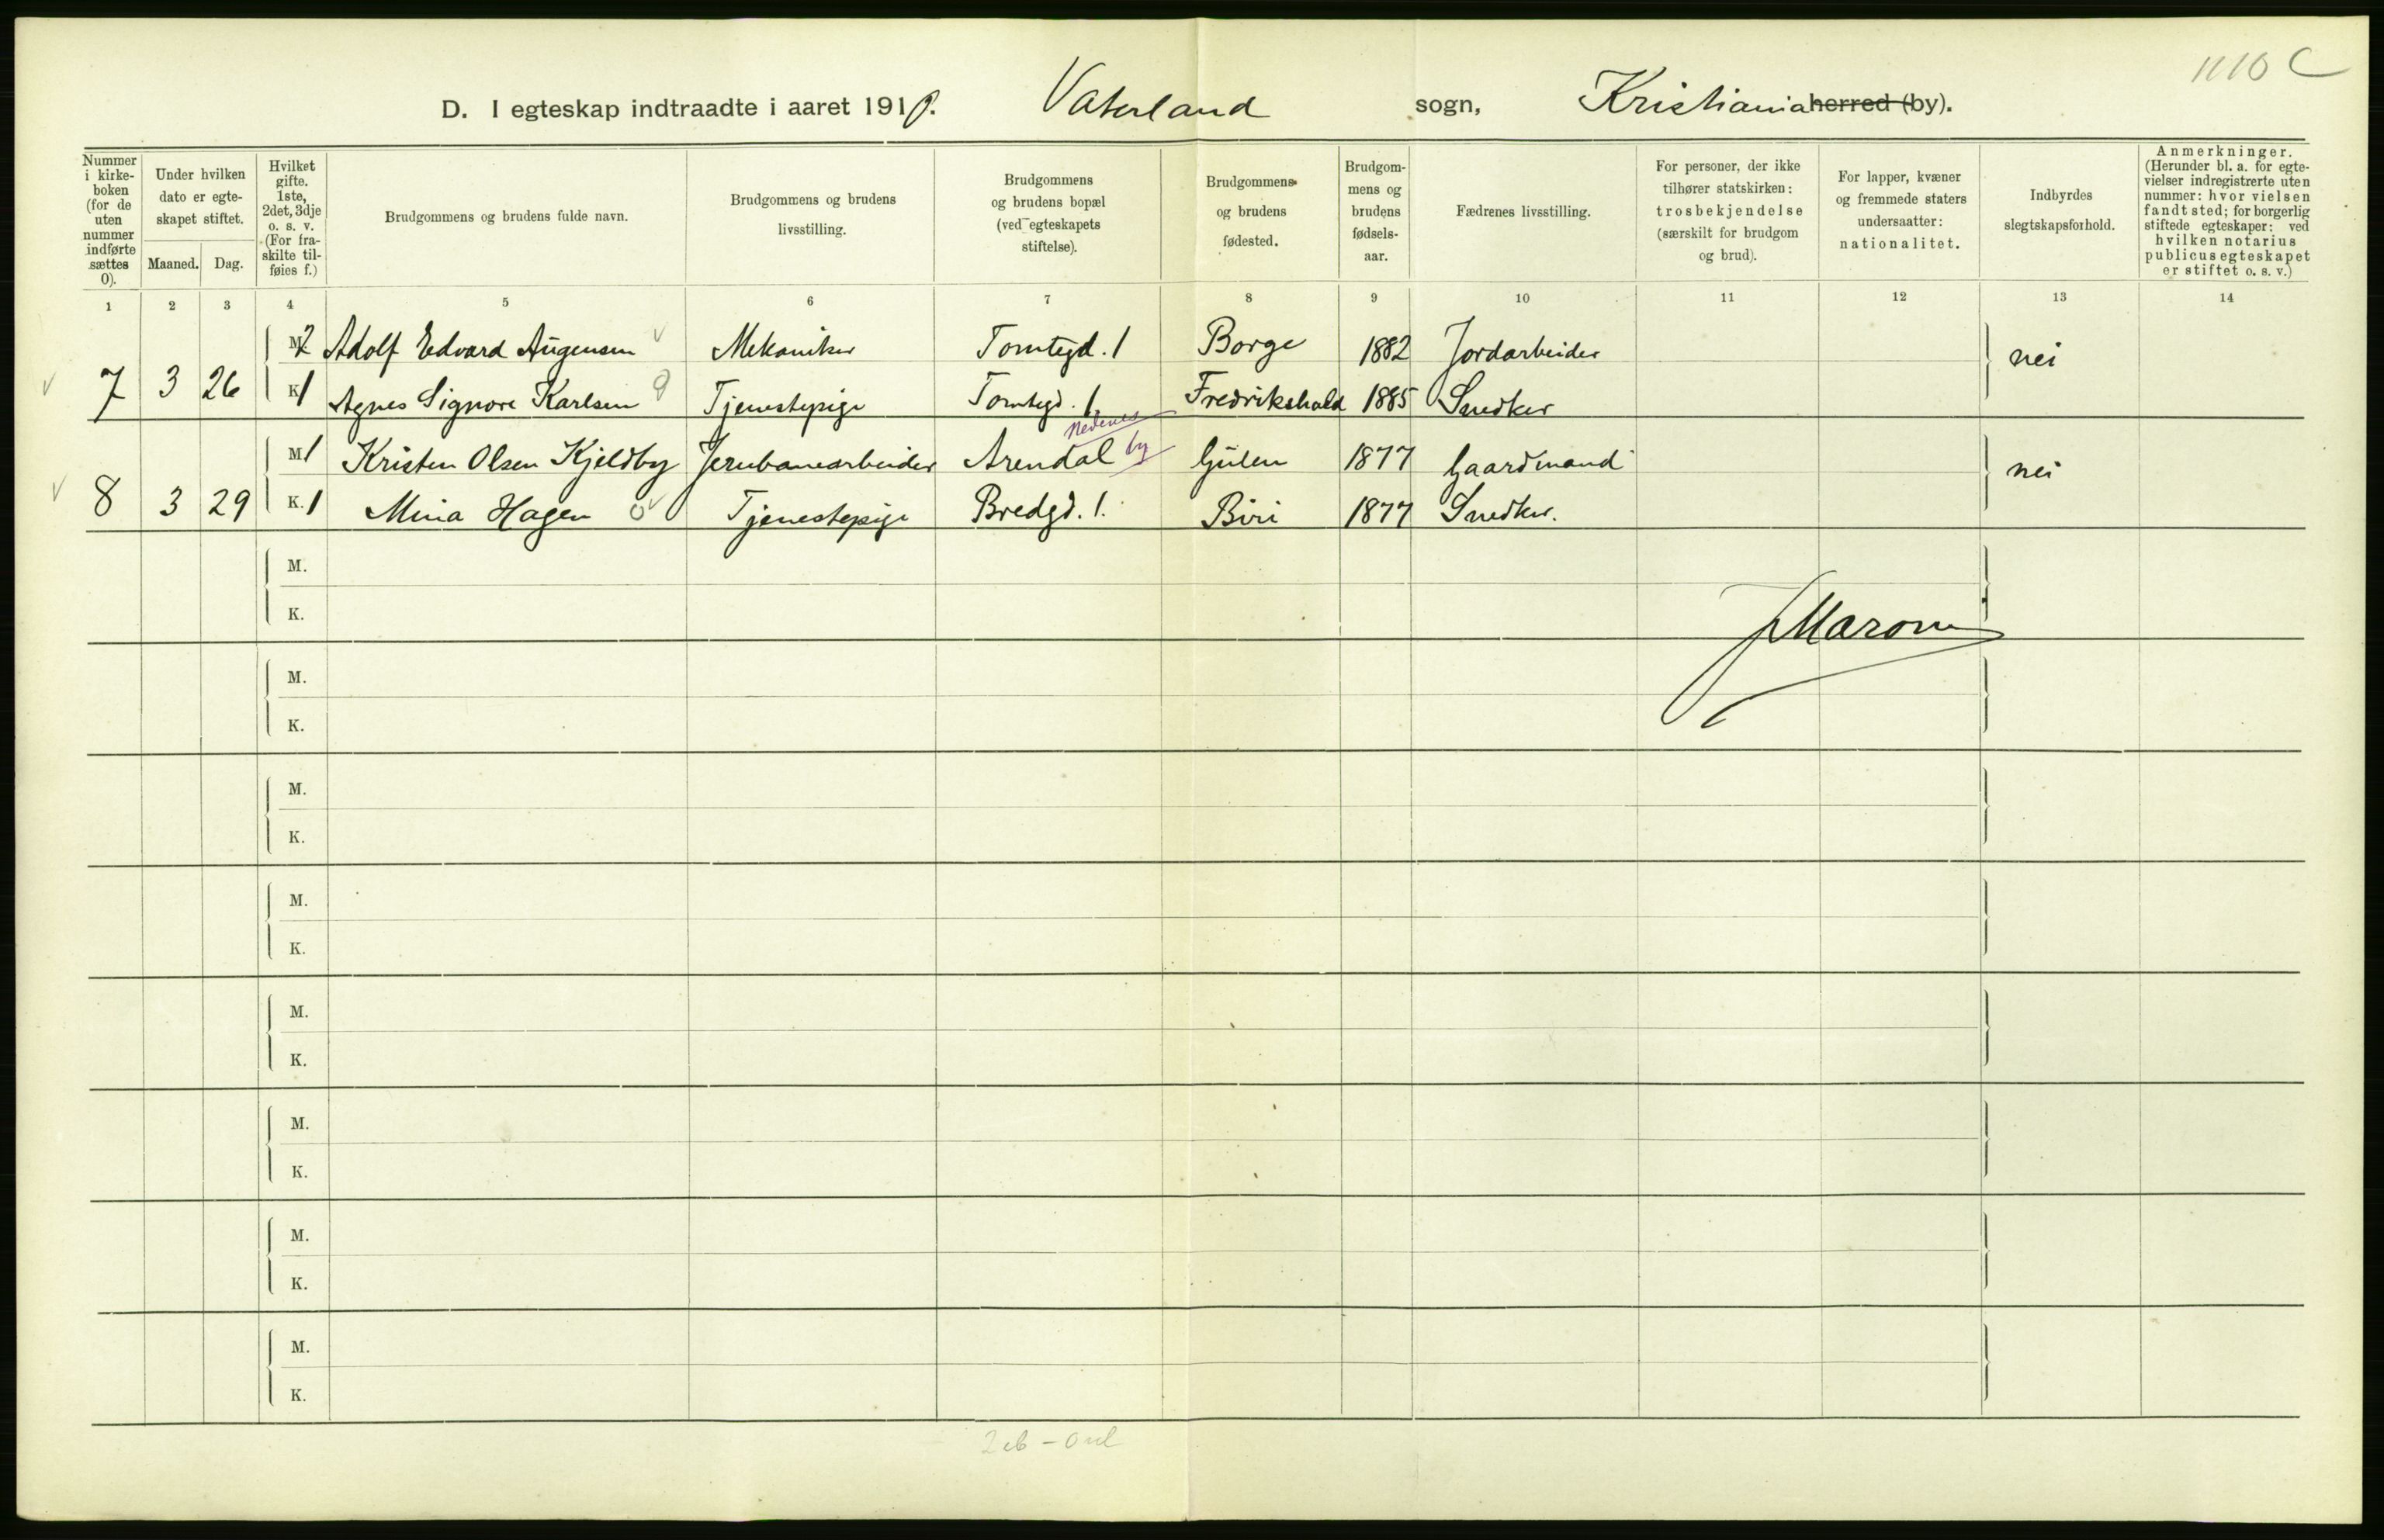 1110 C
D. I egteskap indtraadte i aaret 1910. Vaterland sogn, Kristiania herred (by).
Nummer i kirke-boken (for de uten nummer indførte sættes 0).
Under hvilken dato er egte-skapet stiftet.
Maaned. Dag.
Hvilket gifte. 1ste, 2det, 3dje o. s. v. (For fra-skilte til-føies f.)
Brudgommens og brudens fulde navn.
Brudgommens og brudens livsstilling.
Brudgommens og brudens bopæl (ved egteskapets stiftelse).
Brudgommens og brudens fødested.
Brudgom-mens og brudens fødsels-aar.
Fædrenes livsstilling.
For personer, der ikke tilhører statskirken: trosbekjendelse (særskilt for brudgom og brud).
For lapper, kvæner og fremmede staters undersaatter: nationalitet.
Indbyrdes slegtskapsforhold.
Anmerkninger. (Herunder bl. a. for egte-vielser indregistrerte uten nummer: hvor vielsen fandt sted; for borgerlig stiftede egteskaper: ved hvilken notarius publicus egteskapet er stiftet o. s. v.)
1 2 3 4 5 6 7 8 9 10 11 12 13 14
M. 2 Adolf Edvard Augensen Mekaniker Tomtegd. 1 Borge 1882 Jordarbeider nei
7 3 26 K. 1 Agnes Signore Karlsen Tjenestepige Tomtegd. 1 Fredrikshald 1885 Snedker
Nedenes
M. 1 Kristen Olsen Kjeldby Jernbanearbeider Arendal by Gulen 1877 Gaardmand nei
8 3 29 K. 1 Mina Hagen Tjenestepige Bredgd. 1. Biri 1877 Snedker.
M.
K.
M.
K.
M.
K.
M.
K.
M.
K.
M.
K.
M.
K.
M.
K.